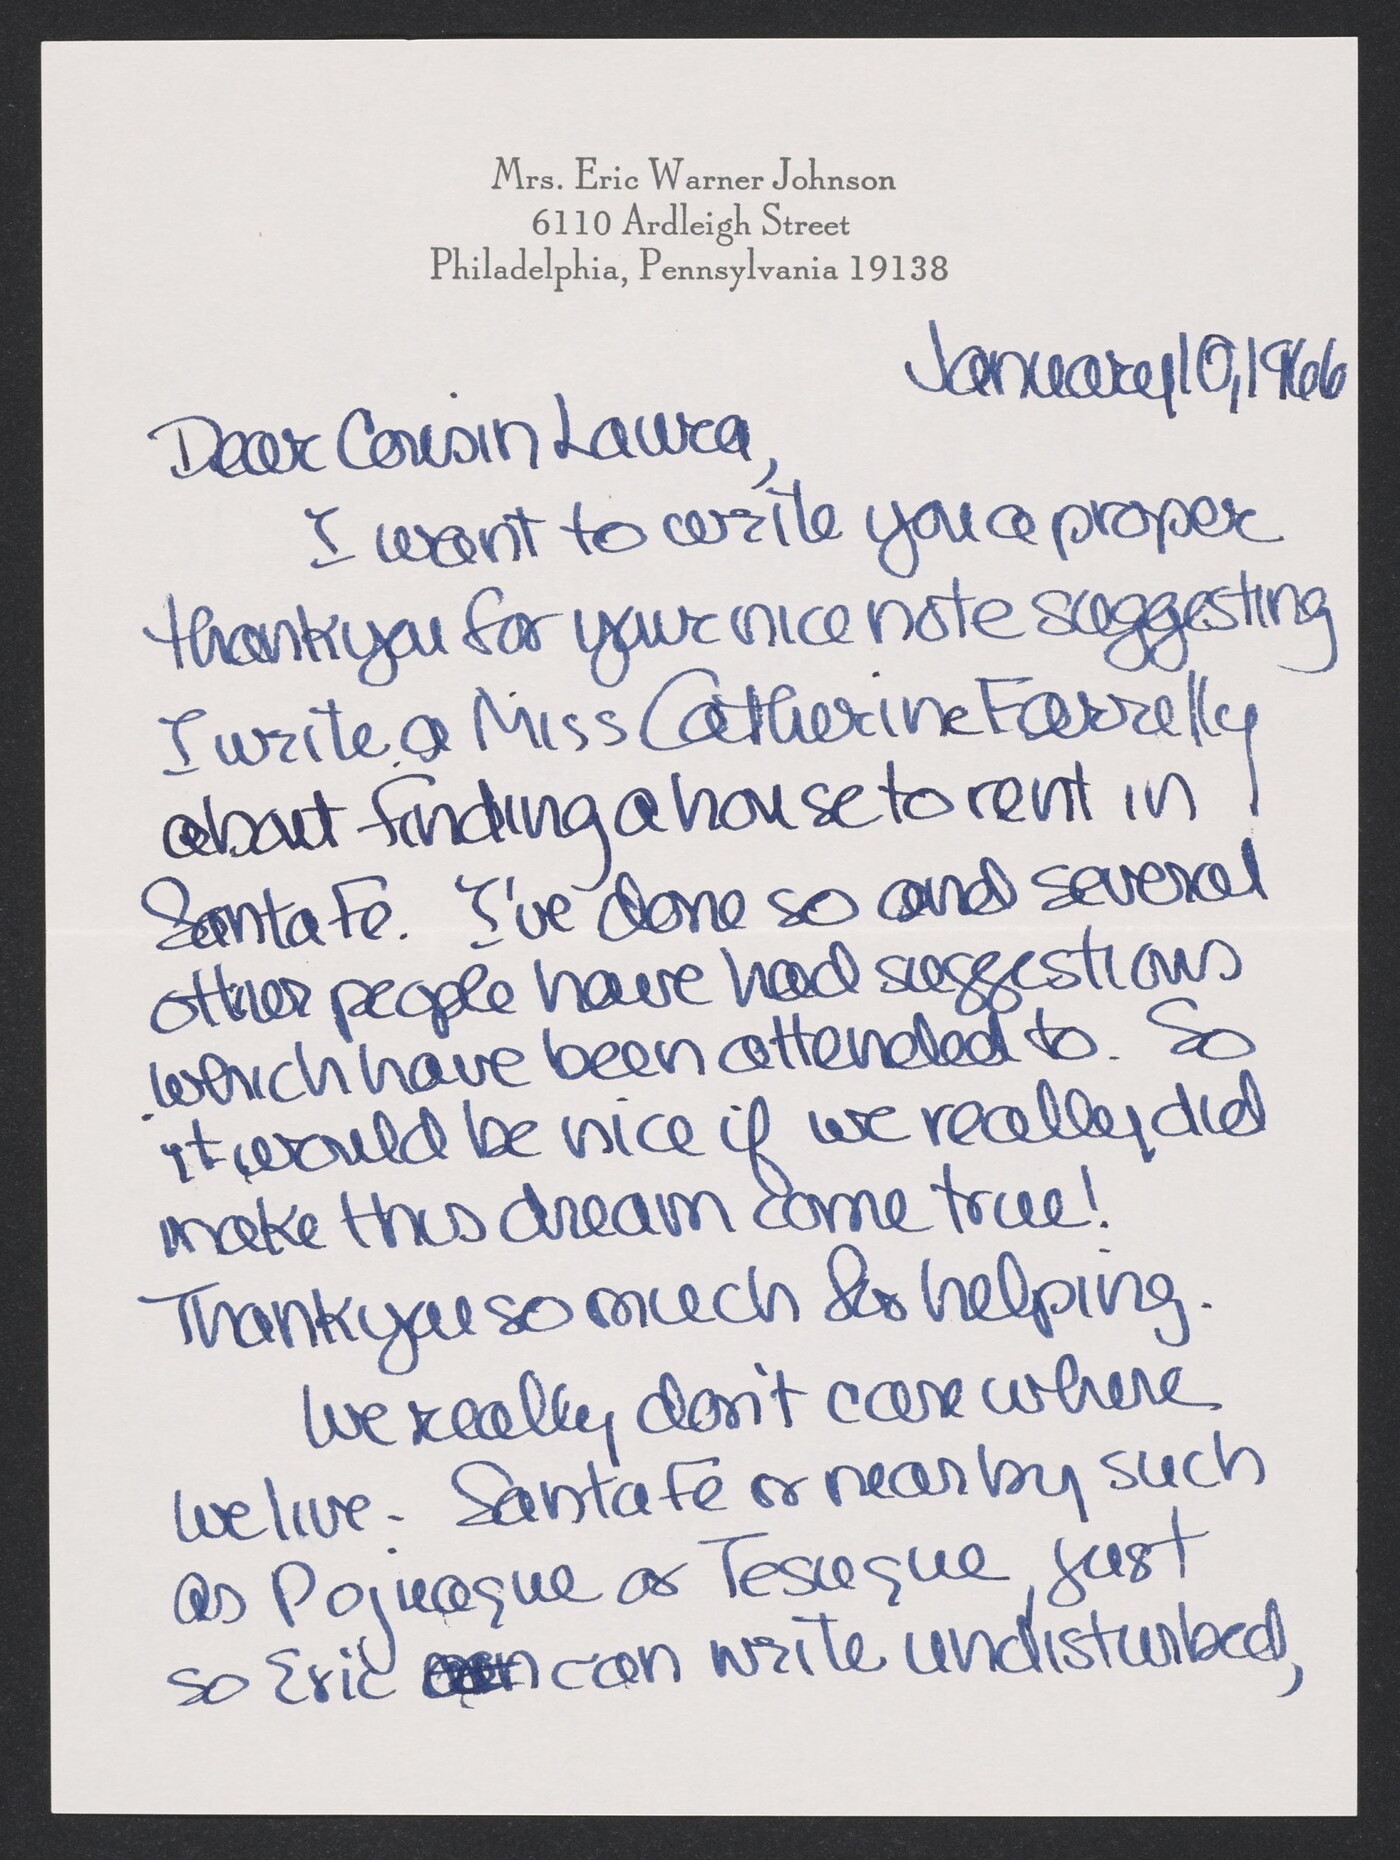 Mrs. Eric Warner Johnson
6110 Ardleigh Street
Philadelphia, Pennsylvania 19138
January 10, 1966
Dear Cousin Laura,
I want to write you a proper
thank you for your nice note suggesting
I write a Miss Catherine Farrelly
about finding a house to rent in
Santa Fe. I've done so and several
other people have had suggestions
which have been attended to. So
it would be nice if we really did
make this dream come true!
Thank you so much for helping.
We really don't care where
we live. Santa Fe or nearby such
as Pojuaque or Tesuque, just
so Eric can write undisturbed,